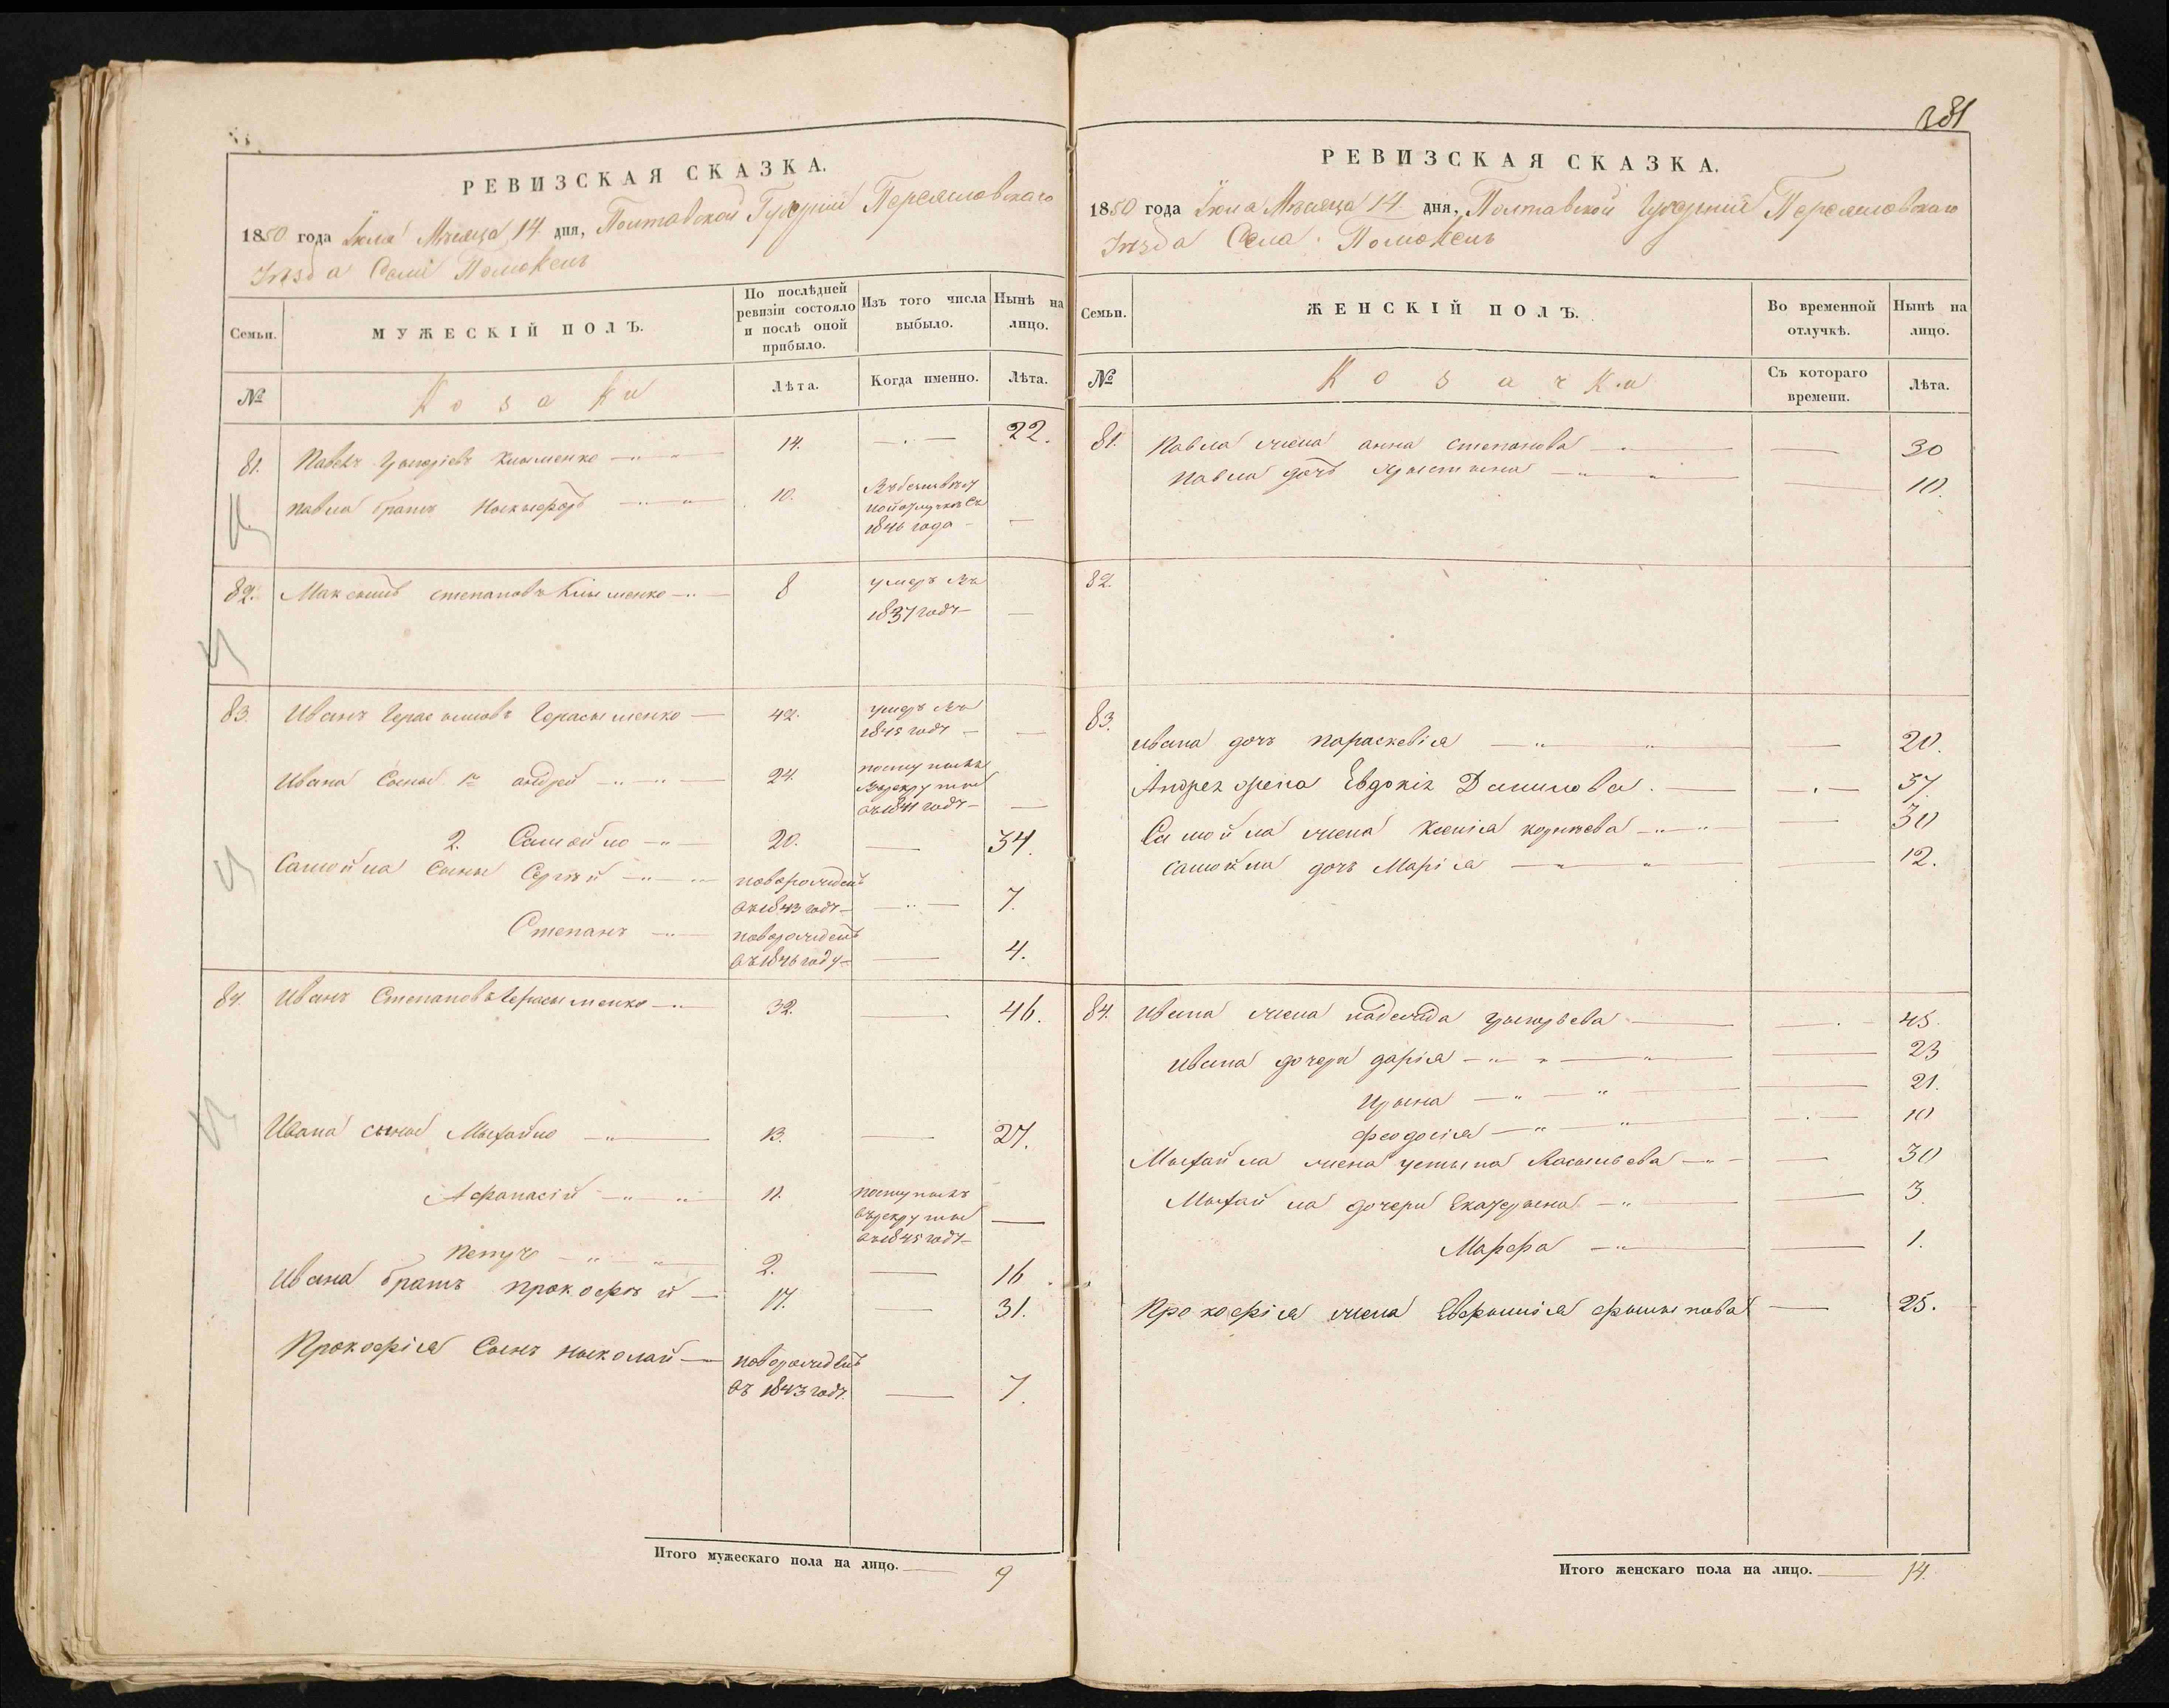 РЕВИЗСКАЯ СКАЗКА.
1850 года Іюля Мѣсяца 14 дня, Полтавской Губерніи Переяславскаго
Уѣзда Села Помоклей
Семьи.
МУЖЕСКІЙ ПОЛЪ.
По послѣдней ревизіи состояло и послѣ оной прибыло.
Изъ того числа выбыло.
Нынѣ на лицо.
№
Козаки
Лѣта.
Когда именно.
Лѣта.
81. Павелъ Григоріевъ Клименко 14. 22.
Павла братъ Ныкыфоръ 10.
1846 года
82. Максымъ Степановъ Клыменко 8 умеръ въ
1837 году
83. Иванъ Герасымовъ Герасыменко 42. умеръ въ
1845 году
Ивана Сыны 1й андрей 24. поступилъ
въ рекруты
въ 1841 году
2. Самойло 20. 34.
Самойла Сыны Сергѣй новорожденъ
въ 1843 году 7.
Степанъ новорожденъ
въ 1846 году 4.
84. Иванъ Степановъ Герасыменко 32. 46.
Ивана сыны Мыхайло 13. 27.
Афанасій 11. поступилъ
въ рекруты
въ 1845 году
Петръ 2. 16
Ивана братъ Прокофѣй 17. 31.
Прокофія Сынъ Ныколай новорожденъ
въ 1843 году. 7.
Итого мужескаго пола на лицо. 9
281
РЕВИЗСКАЯ СКАЗКА.
1850 года Іюля Мѣсяца 14 дня, Полтавской Губерніи Переяславскаго
Уѣзда Села Помоклей
Семьи.
ЖЕНСКІЙ ПОЛЪ.
Во временной отлучкѣ.
Нынѣ на лицо.
№
Козачки
Съ котораго времени.
Лѣта.
81. Павла жена анна степанова 30
Павла дочь Хрыстына 10.
82.
83.
Ивана дочь параскевія 20.
Андрея жена Евдокія Данилова. 37.
Самойла жена Ксенія корнѣева 30
Самойла дочь Марія 12.
84. Ивана жена надежда Григорьева 45.
Ивана дочери дарія 23
Ирына 21.
феодосія 10
Мыхайла жена устына Васыльева 30
Мыхайла дочери Екатерына 3.
Марфа 1.
Прокофія жена Евфымія фылыпова 25.
Итого женскаго пола на лицо. 14.